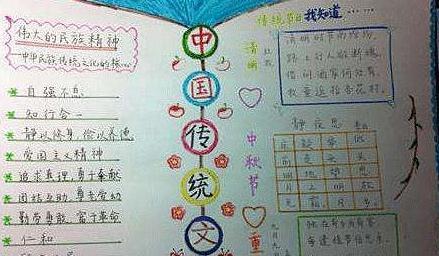 伟大的民族精神
中华民族传统文化的核心
自强不息
知行合一
静以修身 俭以养德
爱国主义精神
追求真理 勇于奉献
团结互助 尊老爱幼
勤劳勇敢 富于革命
仁和
中
国
传
统
文
传统节日我知道......
清明
清明时节雨纷纷
路上行人欲断魂
借问酒家何处有
牧童遥指杏花村
中秋节
静夜思
重
九月九
独在异乡为异客
每逢佳节倍思亲